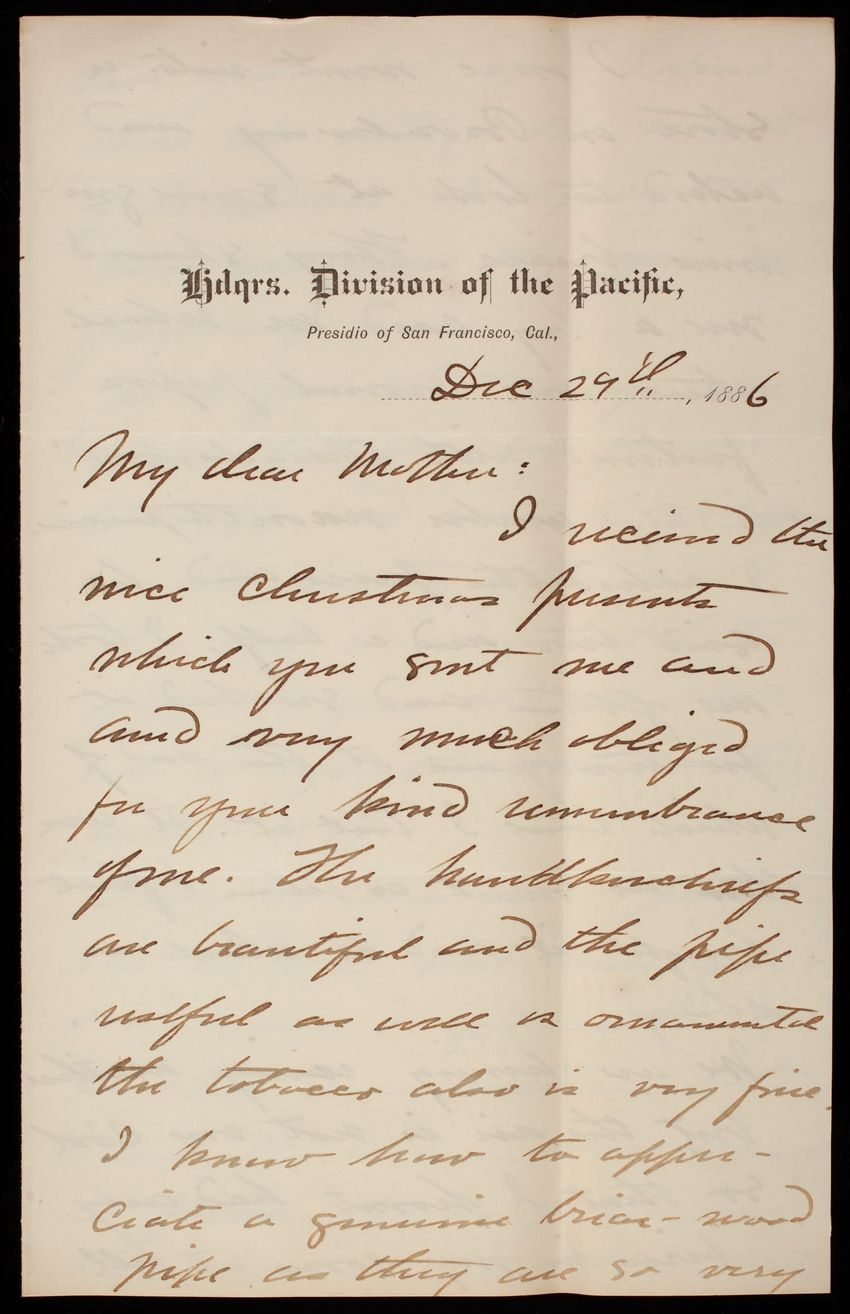 Hdqrs. Division of the Pacific,
Presidio of San Francisco, Cal.,
Dec 29th, 1886
My dear Mother:
I received the
nice Christmas presents
which you sent me and
and very much obliged
for your kind remembrance
of me. The handkerchiefs
are beautiful and the pipe
useful as well as ornamental
the tobacco also is very fine.
I know how to appre-
ciate a genuine briar-wood
pipe as they are so very